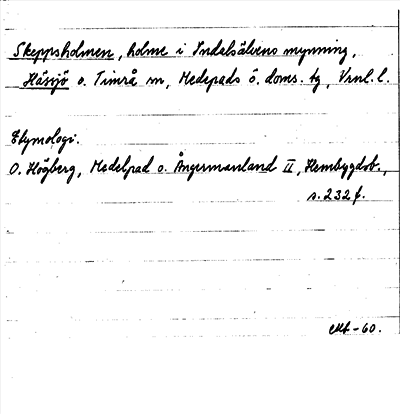 Skeppsholmen, holme i Indalsälvens mynning,
Hässjö o. Timrå sn, Medelpads ö. doms. tg, Vrnl. l.
Etymologi.
O. Högberg, Medelpad o. Ångermanland II, Hembygdsb.,
s. 232 f.
-60.